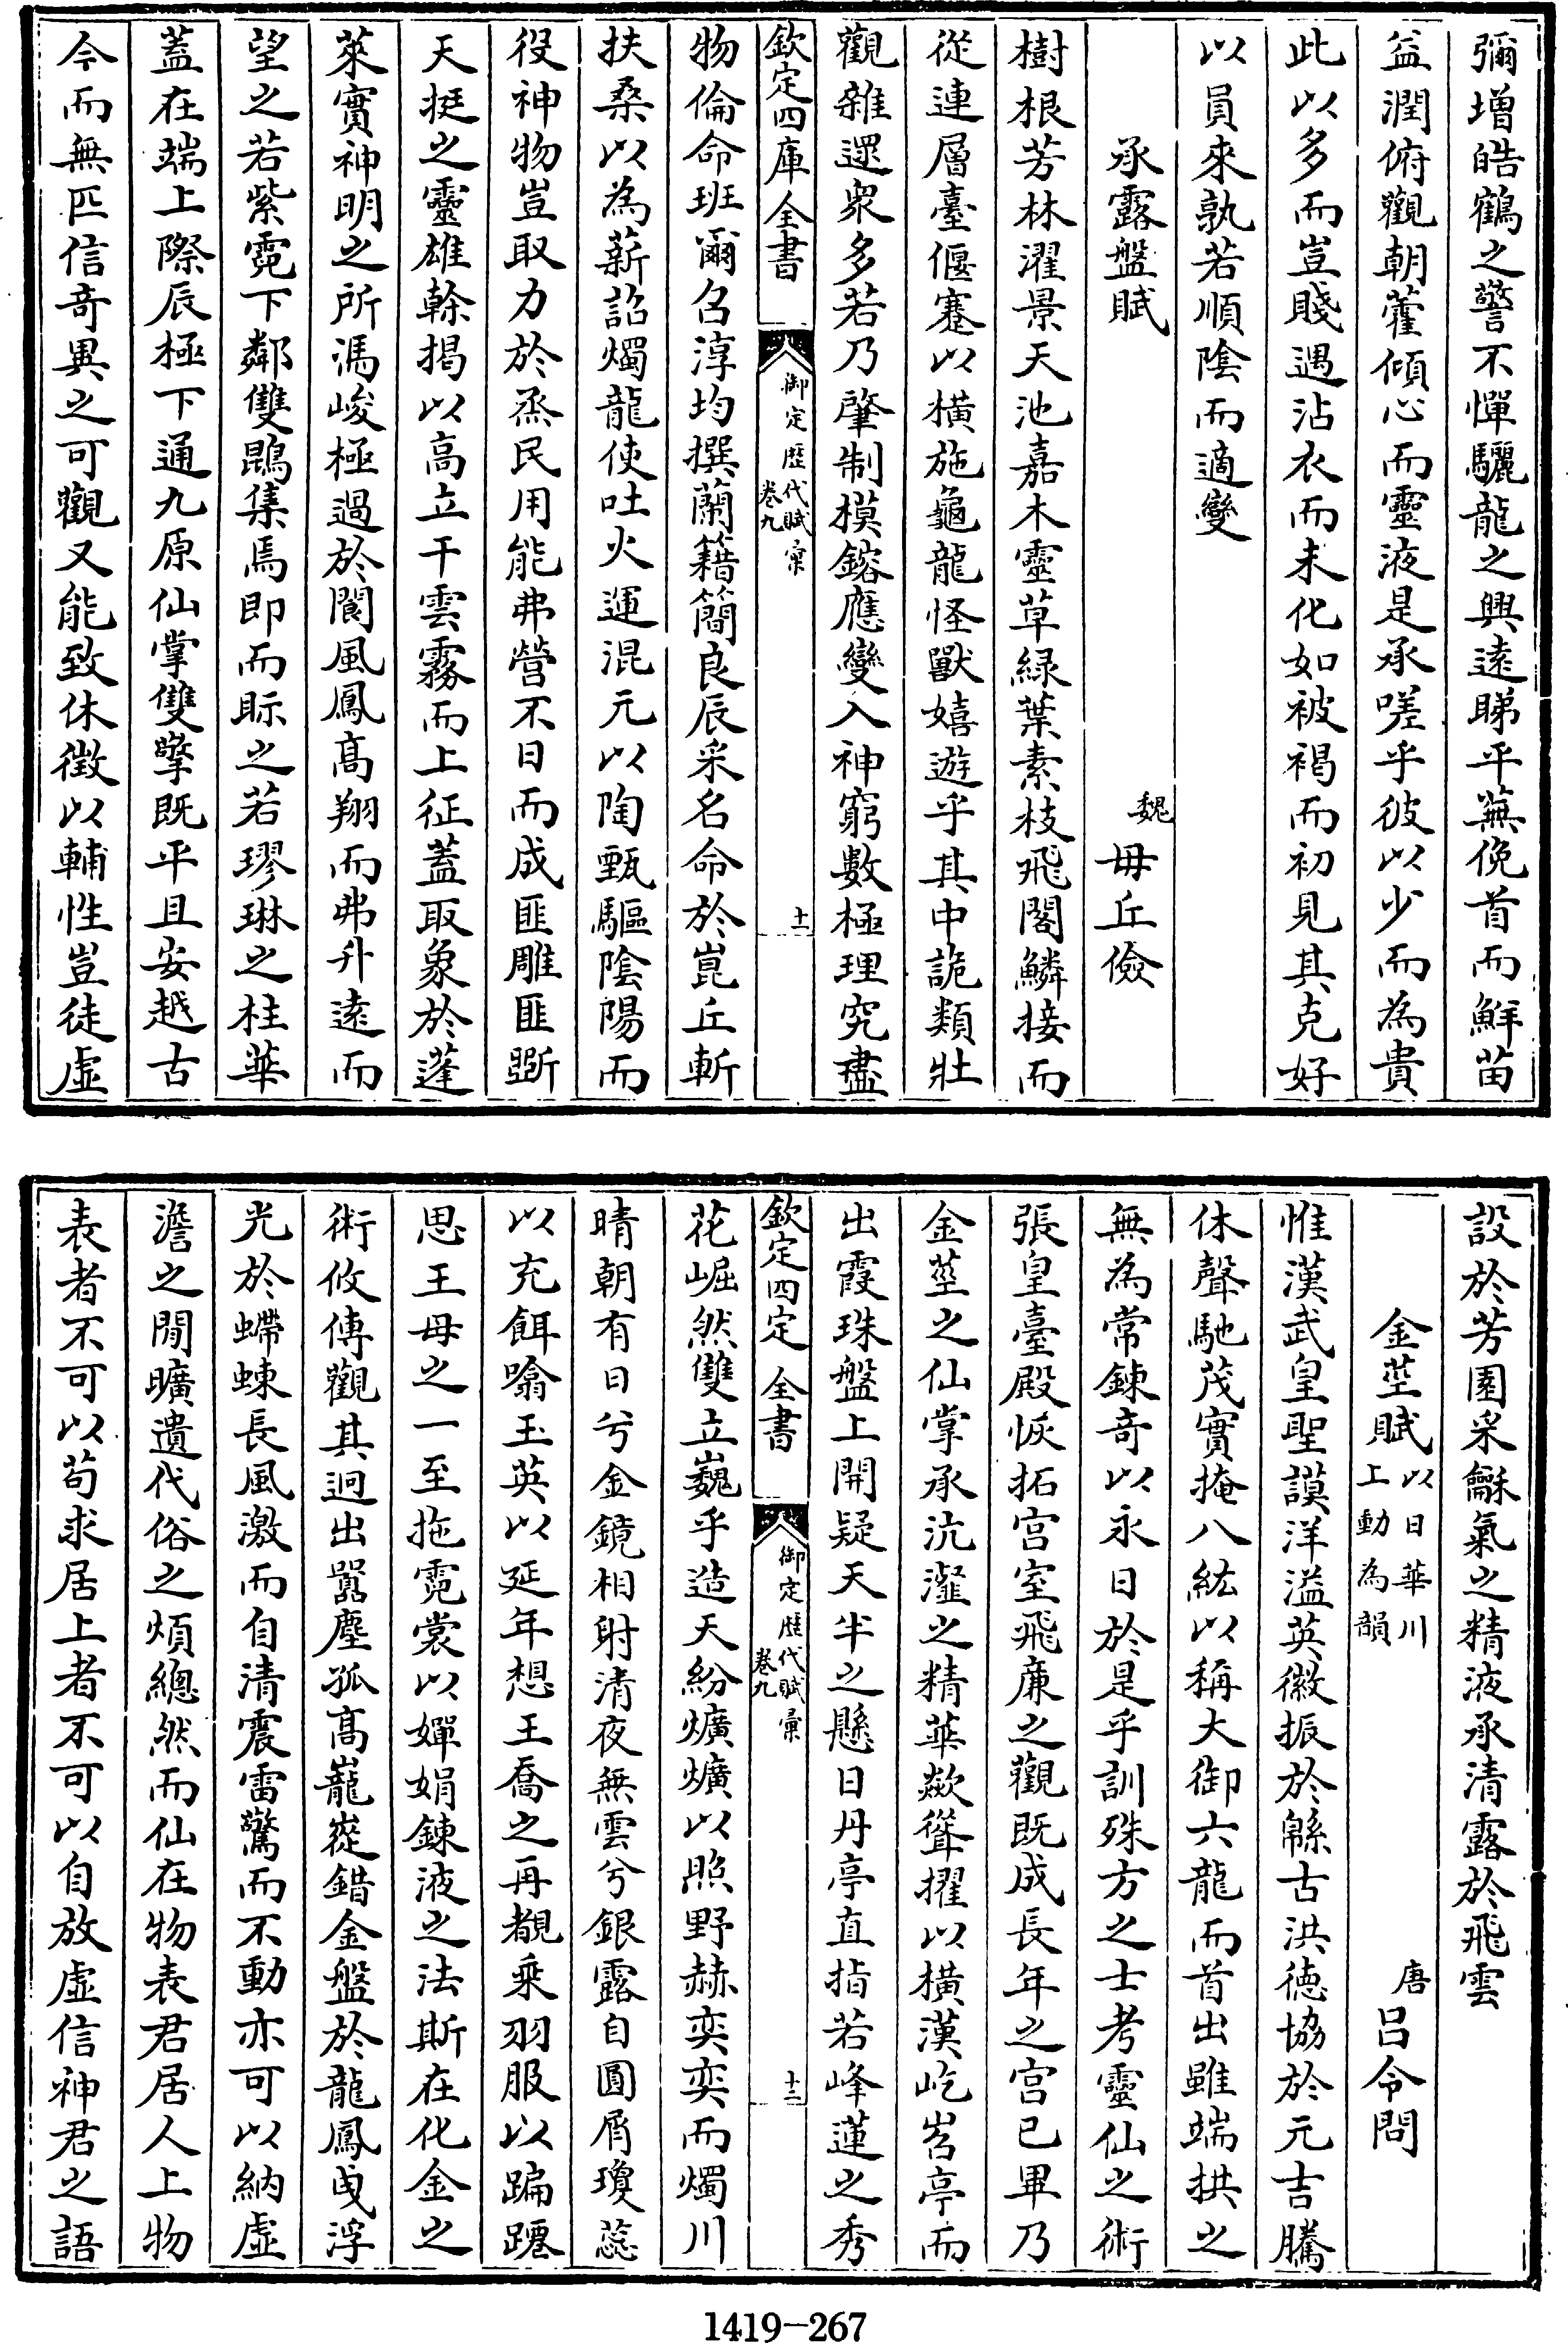 彌增皓鶴之警不憚驪龍之興遠睇平蕪俛首而鮮苗
益潤俯觀朝藿傾心而靈液是承嗟乎彼以少而為貴
此以多而豈賤遇沾衣而未化如被褐而初見其克好
以員來孰若順陰而適變
承露盤賦
魏
毋丘儉
樹根芳林濯景天池嘉木靈草緑葉素枝飛閣鱗接而
從連層臺偃蹇以橫施龜龍怪獸嬉遊乎其中詭類壯
觀雜遝衆多若乃肇制模鎔應變入神窮數極理究盡
欽定四庫全書
御定歴代賦彙
卷九
十一
物倫命班爾召淳均撰蘭籍簡良辰采名命於崑丘斬
扶桑以為薪詔燭龍使吐火運混元以陶甄驅陰陽而
役神物豈取力於烝民用能弗營不日而成匪雕匪斵
天挺之靈雄榦揭以高立干雲霧而上征蓋取象於蓬
萊實神明之所馮峻極過於閬風鳳高翔而弗升遠而
望之若紫霓下鄰雙鵾集焉即而眎之若璆琳之柱華
蓋在端上際辰極下通九原仙掌雙擎既平且安越古
今而無匹信奇異之可觀又能致休徴以輔性豈徒虛
設於芳園采龢氣之精液承清露於飛雲
金莖賦
以日華川
上動為韻
唐
呂令問
惟漢武皇聖謨洋溢英徽振於緜古洪德協於元吉騰
休聲馳茂實掩八紘以稱大御六龍而首出雖端拱之
無為常錬奇以永日於是乎訓殊方之士考靈仙之術
張皇臺殿恢拓宫室飛廉之觀既成長年之宫已畢乃
金莖之仙掌承沆瀣之精華歘聳擢以橫漢屹岧亭而
出霞珠盤上開疑天半之懸日丹亭直指若峰蓮之秀
欽定四定全書
御定歴代賦彙
卷九
十二
花崛然雙立巍乎造天紛爌爌以照野赫奕奕而燭川
晴朝有日兮金鏡相射清夜無雲兮銀露自圓屑瓊蕊
以充餌噏玉英以延年想王喬之再覩乘羽服以蹁躚
思王母之一至拖霓裳以嬋娟錬液之法斯在化金之
術攸傳觀其迥出嚻塵孤高巃嵸錯金盤於龍鳳曳浮
光於螮蝀長風激而自清震雷驚而不動亦可以納虛
澹之閒曠遺代俗之煩總然而仙在物表君居人上物
表者不可以苟求居上者不可以自放虛信神君之語
1419-267